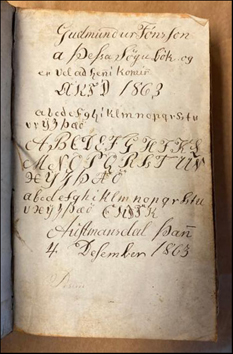 Guðmundur Jónsson
a þessa Sögu bók og
er vel ad heni komin
ARID 1863
abcdefghiklmnopqrstu
vxyzþæö
ABCDEFGHIKL
MNOPQRSTUV
XYZÞÆÖ
abcdefghiklmnopqrstu
vxyzþæö
þann
4. Desember 1863